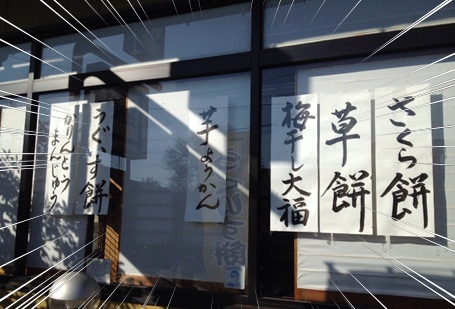 さくら餅
草餅
梅干し大福
芋ようかん
うぐいす餅
かりんとう
まんじゅう